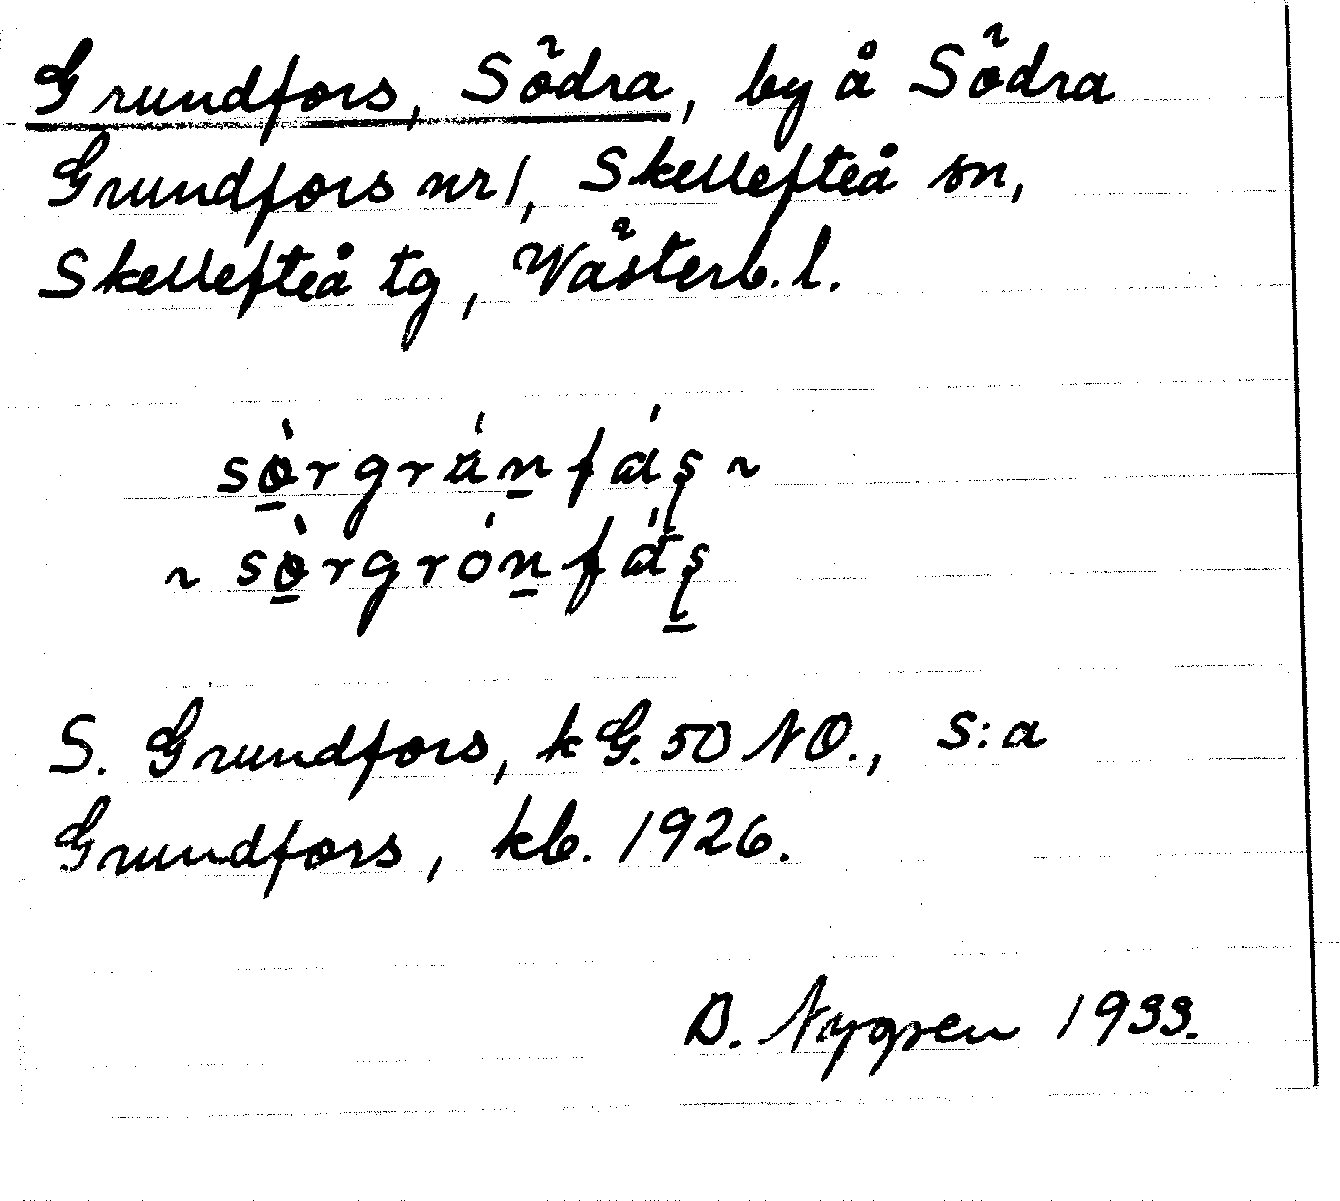 Grundfors, Södra, by å Södra
Grundfors nr 1, Skellefteå sn,
Skellefteå tg, Västerb. l.
sǫ̀rgránfáş ~
~ sǫ̀rgrónfáş
S. Grundfors, kG. 50 NO., S:a
Grundfors, kb. 1926.
D. Nygren 1933.